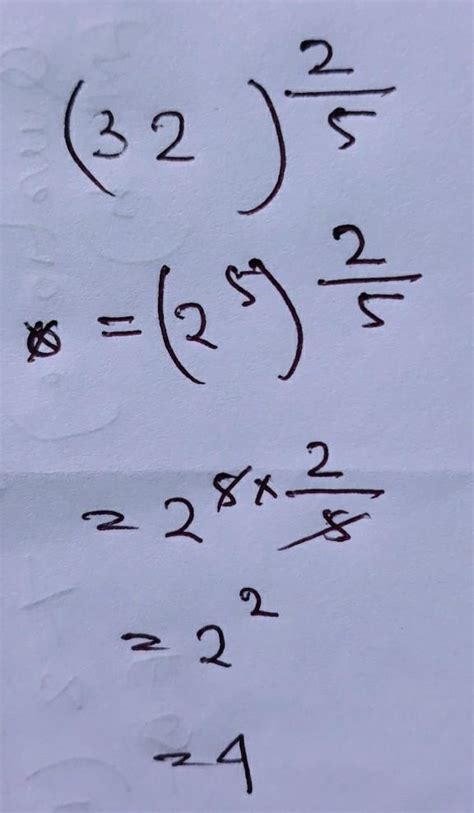 (32)^(2/5)
= (2^5)^(2/5)
= 2^(5 × 2/5)
= 2^2
= 4